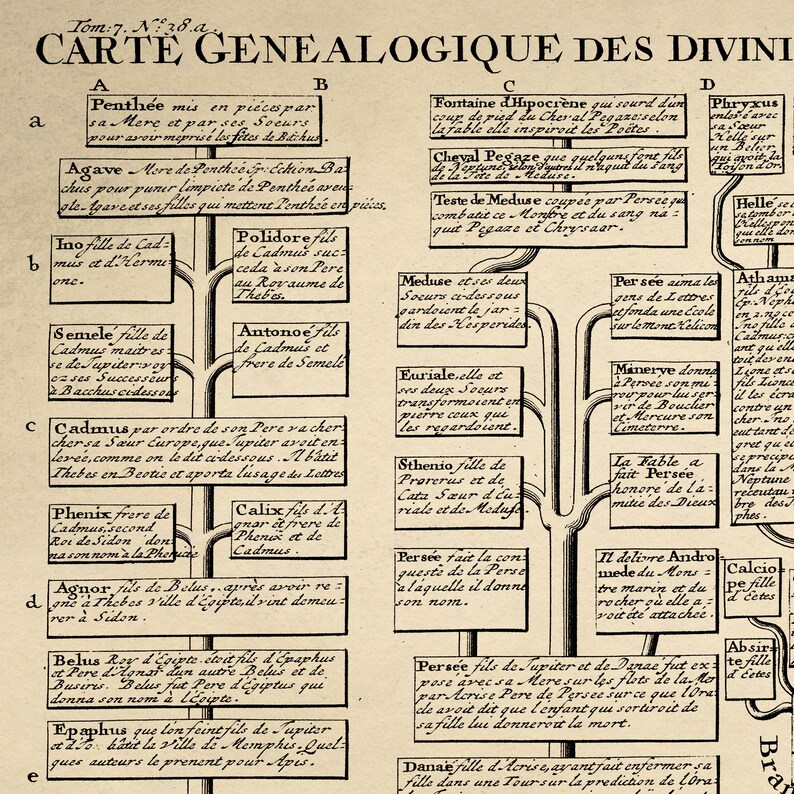 Tom: 7. N.º 38. a.
CARTE GENEALOGIQUE DES DIVINI
A
B
C
D
a
Penthée mis en piéces par
sa Mere et par ses Soeurs
pour avoir meprisé les fêtes de Bacchus.
Agave Mere de Penthée Sp: Echion Ba-
chus pour punir l'impieté de Penthée aveu-
gle Agave et ses filles qui mettent Penthée en piéces.
b
Ino fille de Cad-
mus et d'Hermi-
onc.
Polidore fils
de Cadmus suc-
ceda à son Pere
au Royaume de
Thebes.
Semelé fille de
Cadmus maitres-
se de Jupiter: voy-
ez ses Successeurs
à Bacchus ci-dessous
Antonoé fils
de Cadmus et
frere de Semelé
c
Cadmus par ordre de son Pere va cher-
cher sa Sœur Europe, que Jupiter avoit en-
levée, comme on le dit ci-dessous. Il bâtit
Thebes en Beotie et aporta l'usage des Lettres
Phenix frere de
Cadmus, second
Roi de Sidon don-
na son nom à la Phenicie
Calix fils d'A-
gnor et frere de
Phenix et de
Cadmus.
d
Agnor fils de Belus, après avoir re-
gné à Thebes Ville d'Egipte, il vint demeu-
rer à Sidon.
Belus Roy d'Egipte étoit fils d'Epaphus
et Pere d'Agnor d'un autre Belus et de
Busiris. Belus fut Pere d'Egiptus qui
donna son nom à l'Egipte.
Epaphus que l'on feint fils de Jupiter
et d'Io bâtit la Ville de Memphis. Quel-
ques auteurs le prenent pour Apis.
e
Fontaine d'Hipocrène qui sourd d'un
coup de pied du Cheval Pegaze: selon
la fable elle inspiroit les Poëtes.
Cheval Pegaze que quelquns font fils
de Neptune, selon d'autres il naquit du sang
de la Tête de Meduse.
Teste de Meduse coupée par Persée qui
combatit ce Monstre et du sang na-
quit Pegaze et Chrysaor.
Meduse et ses deux
Soeurs ci-dessous
gardoient le jar-
din des Hesperides
Persée aima les
gens de Lettres
et fonda une Ecole
sur le mont Helicon
Euriale, elle et
ses deux Soeurs
transformoient en
pierre ceux qui
les regardoient.
Minerve donna
à Persée son mi-
roir pour lui ser-
vir de Bouclier
et Mercure son
Cimeterre.
Sthenio fille de
Prorcrus et de
Cata Sœur d'Eu-
riale et de Meduse.
La Fable a
fait Persée
honoré de l'a-
mitié des Dieux
Persée fait la con-
queste de la Perse
a laquelle il donne
son nom.
Il delivre Andro-
mede du Mons-
tre marin et du
rocher où elle a-
voit été attachée.
Persée fils de Jupiter et de Danaé fut ex-
posé avec sa Mere sur les flots de la Mer
par Acrise Pere de Persée sur ce que l'Ora-
cle avoit dit que l'enfant qui sortiroit de
sa fille lui donneroit la mort.
Danaé fille d'Acrise, ayant fait enfermer sa
fille dans une Tour sur la prediction de l'Ora-
Phryxus
enlevé avec
sa Sœur
Hellé sur
un Belier
qui avoit la
Toison d'Or.
Helle
sa tomber
l'Hellespon
qui elle don
son nom
Athama
Calcio-
pe fille
d'Eetes
Absir-
te fille
d'Eetes
Bran